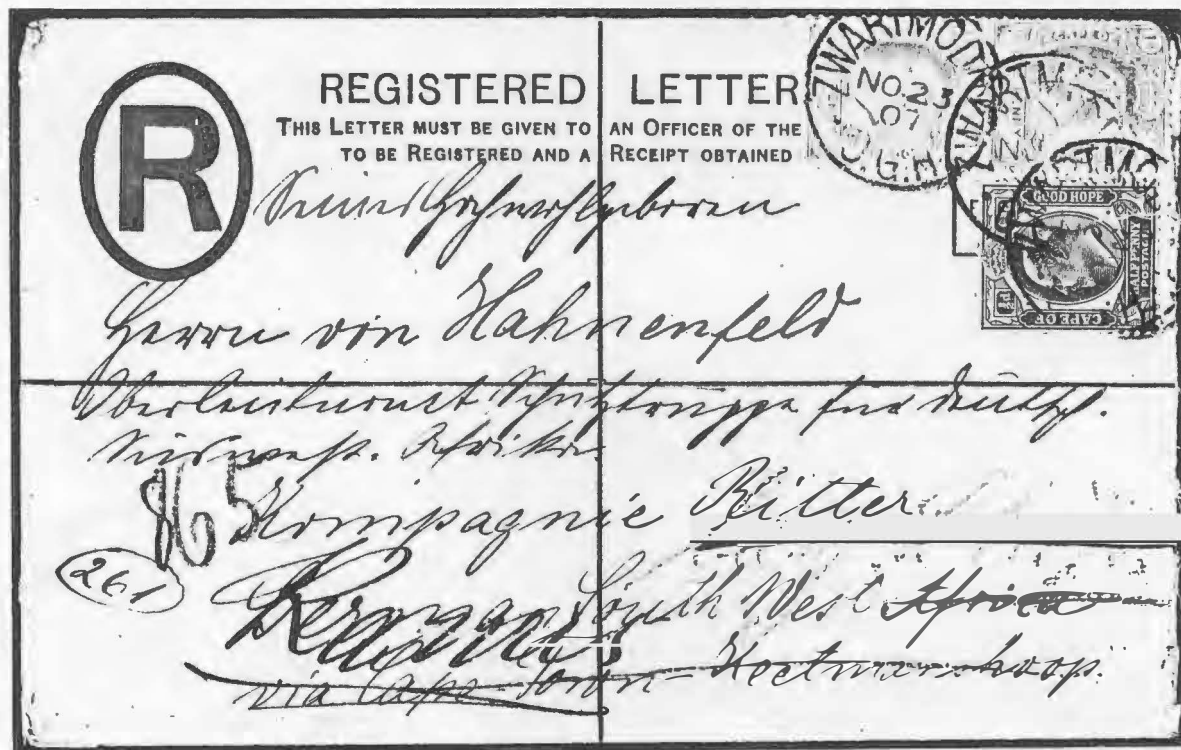 REGISTERED LETTER
THIS LETTER MUST BE GIVEN TO AN OFFICER OF THE
TO BE REGISTERED AND A RECEIPT OBTAINED
R
ZWARTMODD
NO.23
07
C.G.H.
GOOD HOPE
HALF PENNY
POSTAGE
CAPE OF
½d
Seiner Hochwohlgeboren
Herrn von Hahnenfeld
Oberleutnant Schutztruppe für deutsch.
Südwest. Afrika
865
Kompagnie Ritter
261
German South West Africa
via Cape Town - Keetmanskoop.